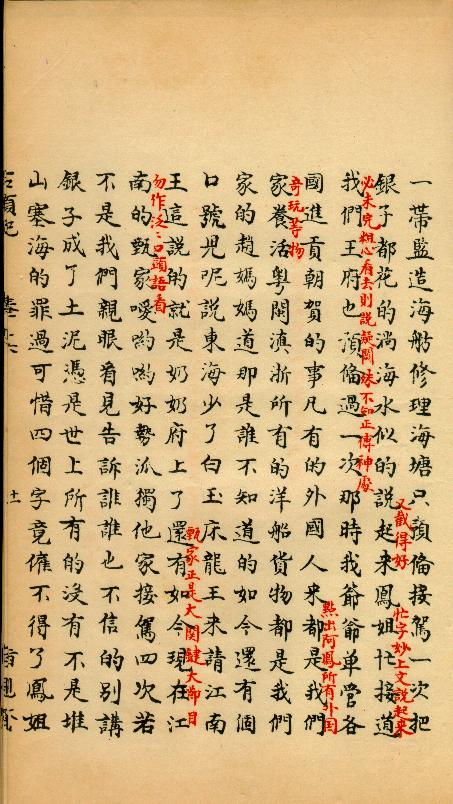 一帶監造海舫修理海塘只預俻接駕一次把
又截得好
忙字妙上文說起来
銀子都花的淌海水似的說起來鳳姐忙接道
必未完粗心看去則說疑闕殊不知正傳神處
我們王府也預俻過一次那時我爺爺单管各
點出阿鳳所有外国
國進貢朝賀的事凡有的外國人来都是我們
奇玩等物
家養活粵閩滇浙所有的洋船貨物都是我們
家的趙媽媽道那是誰不知道的如今還有個
口號児呢說東海少了白玉床龍王来請江南
甄家正是大関鍵大節目
王這說的就是奶奶府上了還有如今現在江
勿作泛〻口頭語看
南的甄家噯喲喲好勢派獨他家接駕四次若
不是我們親眼看見告訴誰誰也不信的別講
銀子成了土泥憑是世上所有的没有不是堆
山塞海的罪過可惜四個字竟僱不得了鳳姐
石頭記
十一